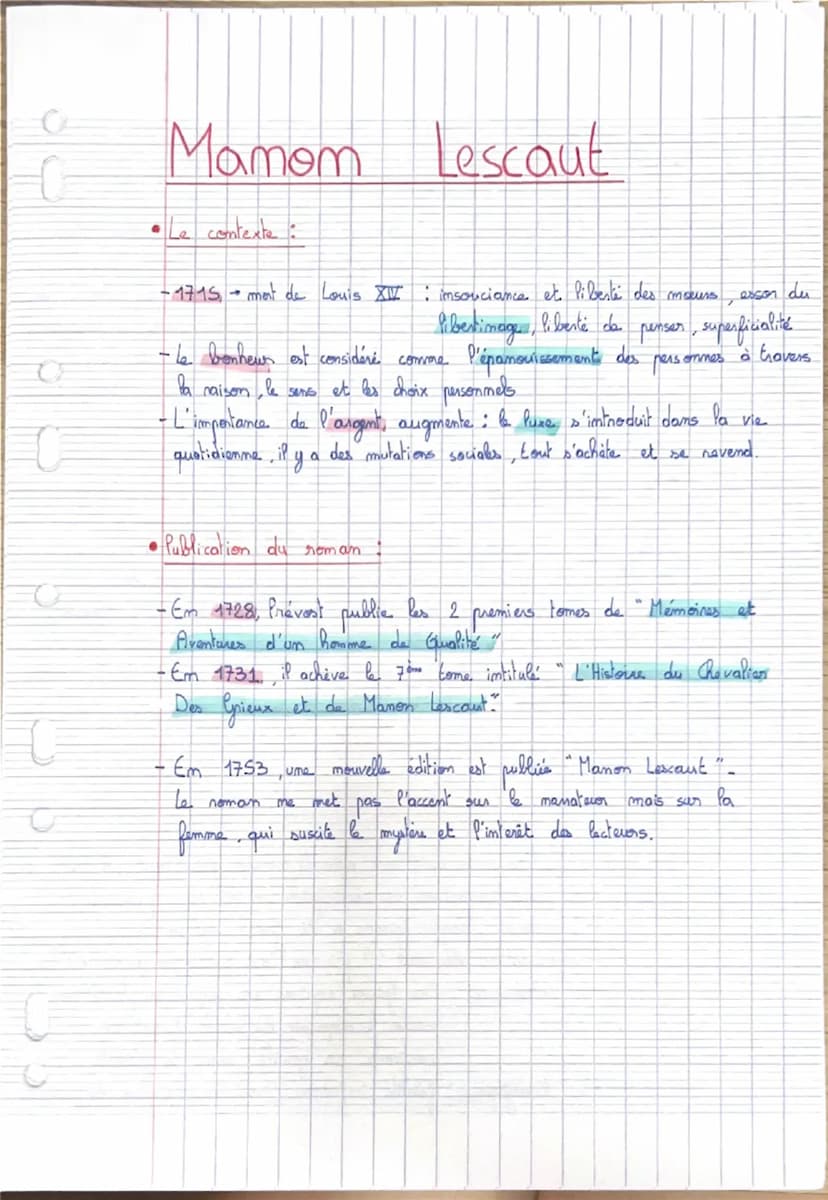 Manon Lescaut
• Le contexte :
- 1715 → mort de Louis XIV : insouciance et liberté des mœurs, essor du
libertinage, liberté de penser, superficialité
- Le bonheur est considéré comme l'épanouissement des personnes à travers
la raison, le sens et les choix personnels
- L'importance de l'argent, augmente : le luxe s'introduit dans la vie
quotidienne, il y a des mutations sociales, tout s'achète et se revend.
• Publication du roman :
- En 1728, Prévost publie les 2 premiers tomes de "Mémoires et
Aventures d'un homme de Qualité"
- En 1731, il achève le 7ème tome intitulé "L'Histoire du Chevalier
Des Grieux et de Manon Lescaut."
- En 1753, une nouvelle édition est publiée "Manon Lescaut".
Le roman ne met pas l'accent sur le narrateur mais sur la
femme, qui suscite le mystère et l'interêt des lecteurs.